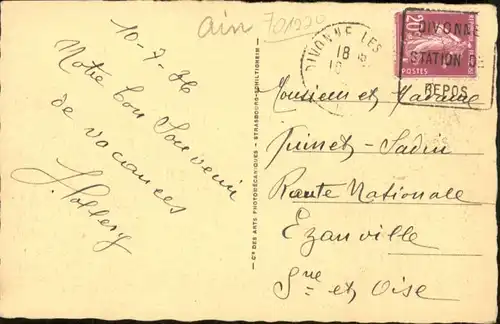 ain 701990
10-7-36
Notre bon Souvenir
de vacances
Cie DES ARTS PHOTOMÉCANIQUES - STRASBOURG-SCHILTIGHEIM
DIVONNE LES
18
20c
POSTES
DIVONNE
STATION D
REPOS
Monsieur et Madame
Route Nationale
Ezanville
Sne et Oise